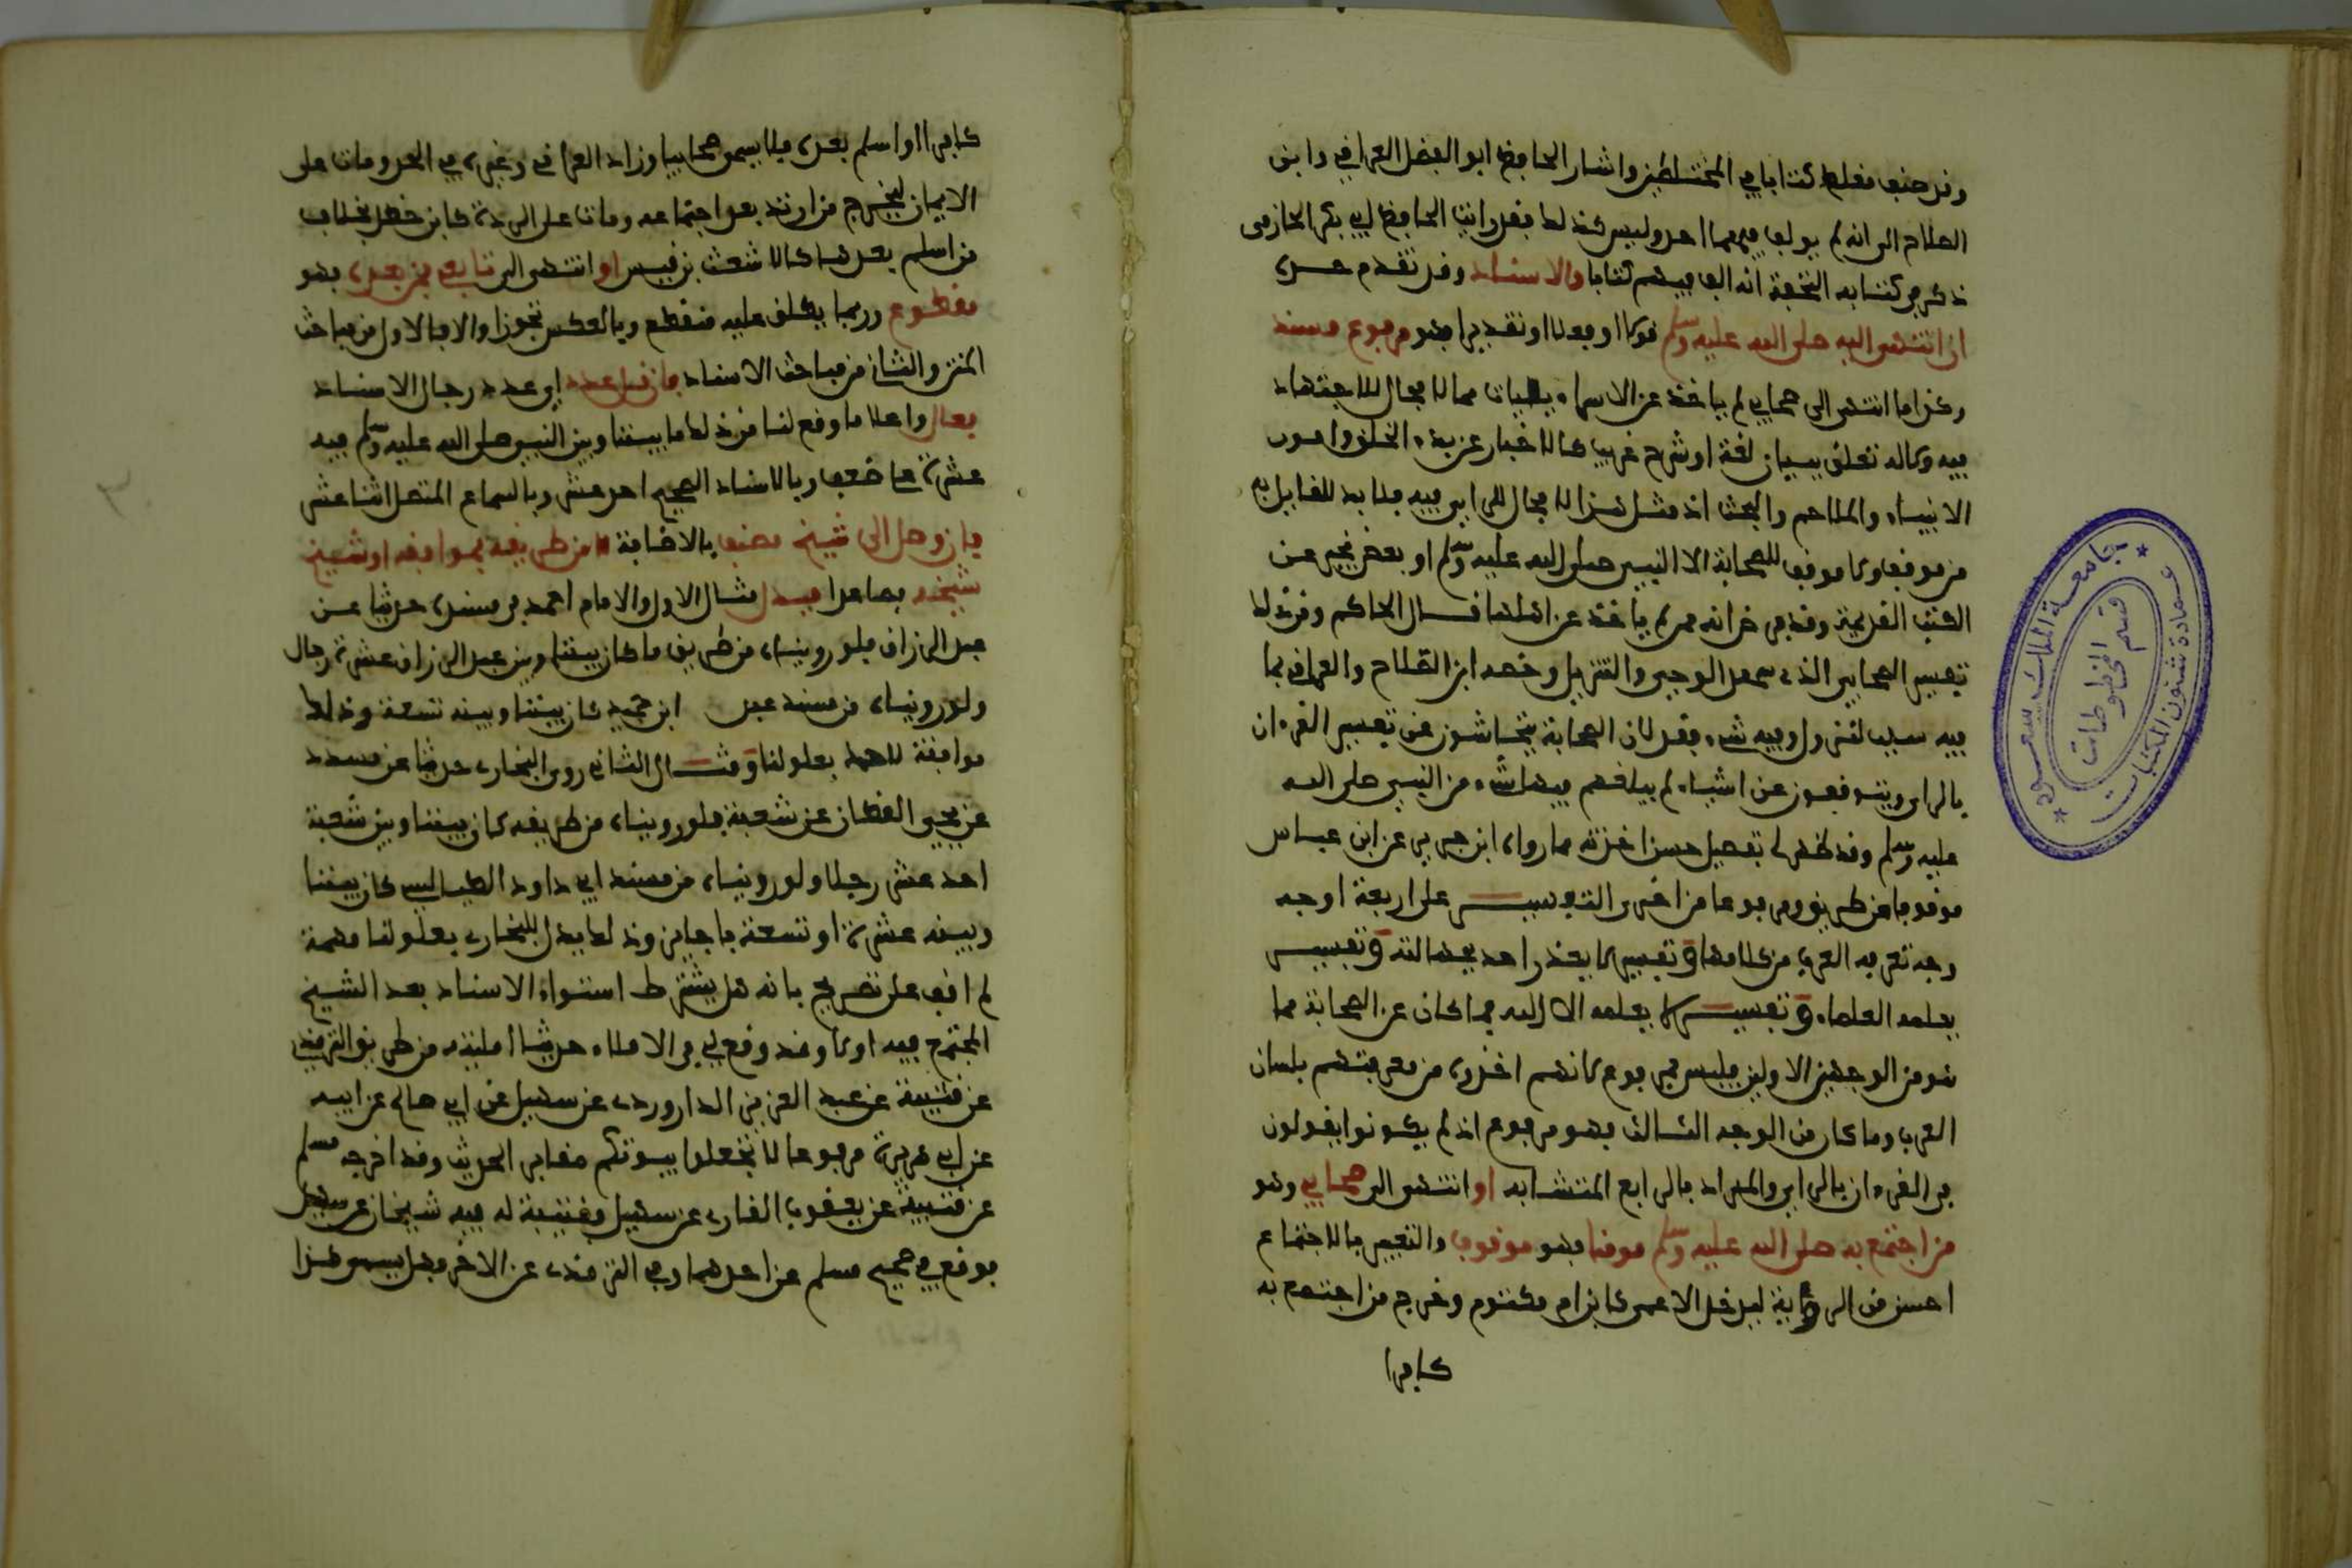 وقد صنف مغلطاي كتابا في المختلطين واشار الحافظ ابو الفضل العراقي وابن
الصلاح الى انه لم يولف فيهما احد وليس كذلك فقد رايت الحافظ ابي بكر الحازمي
ذكر في كتابه التحفة انه الف فيهم كتابا والاسناد وقد تقدم حده
ان انتهى اليه صلى الله عليه وسلم قولا او فعلا او تقديرا فهو مرفوع مسند
وكذا ما انتهى الى صحابي لم ياخذ عن الاسرائيليات مما لا مجال للاجتهاد
فيه ولا له تعلق ببيان لغة او شرح غريب كالاخبار عن بدء الخلق وامور
الانبياء والملاحم والبعث اذ مثل هذا لا مجال للراي فيه فلا بد للقايل به
من موقف ولا موقف للصحابة الا النبي صلى الله عليه وسلم او بعض يخبر عن
الكتب القديمة وقد فرض انه ممن لم ياخذ عن اهلها قال الحاكم ومن ذلك
تفسير الصحابي الذي شهد الوحي والتنزيل وخصه ابن الصلاح والعراقي بما
فيه سبب لنزول وفيه شيء فقد كان الصحابة يتحاشون عن تفسير القرءان
بالراي ويتوقفون عن اشياء لم يبلغهم فيها شيء من النبي صلى الله
عليه وسلم وقد ظهر لي تفصيل حسن اخذته مما رواه ابن جرير عن ابن عباس
موقوفا من طريق ومرفوعا من اخرى التفسير على اربعة اوجه
وجه تعرفه العرب من كلامها وتفسير لا يعذر احد بجهالته وتفسير
يعلمه العلماء وتفسير لا يعلمه الا الله فما كان عن الصحابة مما
هو من الوجهين الاولين فليس بمرفوع لانهم اخذوه من معرفتهم بلسان
العرب وما كان من الوجه الثالث فهو مرفوع اذ لم يكونوا يقولون
في القرءان بالراي والمراد بالرابع المتشابه او انتهى الى صحابي وهو
من اجتمع به صلى الله عليه وسلم مومنا فهو موقوف والتعبير بالاجتماع
احسن من الروية ليدخل الاعمى كابن ام مكتوم وخرج من اجتمع به
كافرا
جامعة الملك سعود
عمادة شئون المكتبات
قسم المخطوطات
كافرا او اسلم بعده فلا يسمى صحابيا وزاد العراقي وغيره في الحد ومات على
الايمان ليخرج من ارتد بعد اجتماعه ومات على الردة كابن خطل بخلاف
من اسلم بعدها كالاشعث بن قيس او انتهى الى تابعي فمن بعده فهو
مقطوع وربما يطلق عليه منقطع وبالعكس تجوزا والا فالاول من مباحث
المتن والثاني من مباحث الاسناد فان قل عدده اي عدد رجال الاسناد
فعال واعلا ما وقع لنا من ذلك ما بيننا وبين النبي صلى الله عليه وسلم فيه
عشرة مع ضعف وبالاسناد الصحيح احد عشر وبالسماع المتصل اثنا عشر
فان وصل الى شيخ مصنف بالاضافة لا من طريقه فموافقة او شيخ
شيخه فصاعدا فبدل مثال الاول الامام احمد في مسنده حديثا عن
عبد الرزاق فلو رويناه من طريق ما كان بيننا وبين عبد الرزاق عشرة رجال
ولو رويناه من مسند عبد ابن حميد كان بيننا وبينه تسعة وذلك
موافقة لاحمد بعلو لنا ومثال الثاني روى البخاري حديثا عن مسدد
عن يحيى القطان عن شعبة فلو رويناه من طريقه كان بيننا وبين شعبة
احد عشر رجلا ولو رويناه من مسند ابي داود الطيالسي كان بيننا
وبينه عشرة او تسعة باجازتين وذلك بدل للبخاري بعلو لنا مهمة
لم اقف على تصريح بانه هل يشترط استواء الاسناد بعد الشيخ
المجتمع فيه او لا وقد وقع لي في الاملاء حديث امليته من طريق الترمذي
عن قتيبة عن عبد العزيز الدراوردي عن سهيل عن ابي صالح عن ابيه
عن ابي هريرة مرفوعا لا تجعلوا بيوتكم مقابر الحديث وقد اخرجه مسلم
عن قتيبة عن يعقوب القاري عن سهيل فقتيبة له فيه شيخان عن سهيل
فوقع في صحيح مسلم عن احدهما وفي الترمذي عن الاخر فهل يسمى هذا